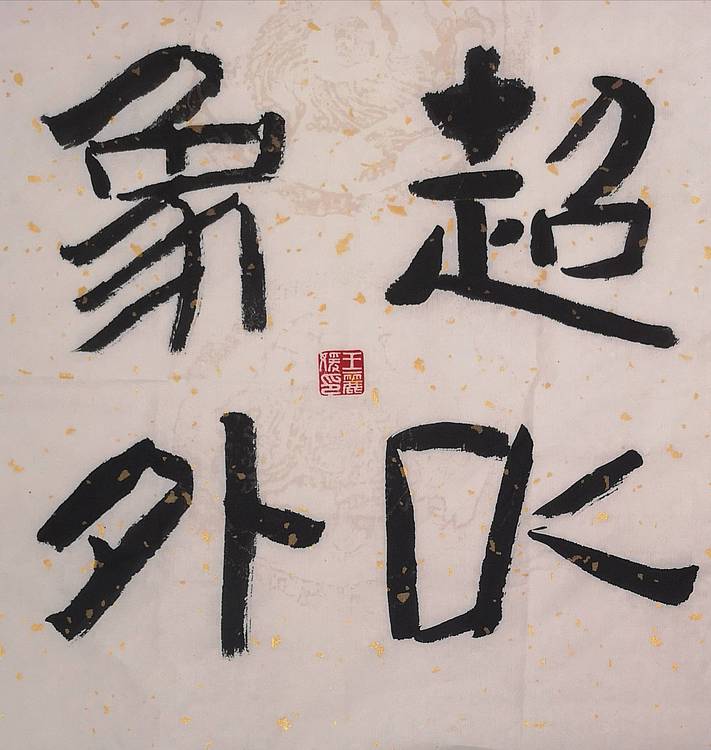 超以
象外
王麗
媛印